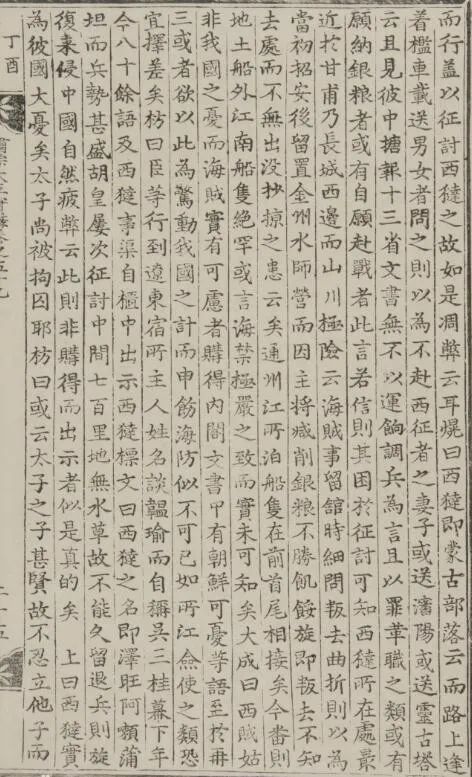 而行盖以征討西㺚之故如是凋弊云耳熀曰西㺚即蒙古部落云而路上逢
着檻車載送男女者問之則以為不赴西征者之妻子或送瀋陽或送靈古塔
云且見彼中搪報十三省文書無不以運餉調兵為言且以罪革職之類或有
願納銀粮者或有自願赴戰者此言若信則其困於征討可知西㺚所在處最
近於甘甫乃長城西邊而山川極險云海賊事留館時細問叛去曲折則以為
當初招安後留置金州水師營而因主將减削銀粮不勝飢餒旋即叛去不知
去處而不無出没抄掠之患云矣通州江所泊船隻在前首尾相接矣今畨則
地土船外江南船隻絶罕或言海禁極嚴之致而實未可知矣大成曰西賊姑
非我國之憂而海賊實有可慮者購得内閣文書中有朝鮮可憂等語至於再
三或者欲以此為驚動我國之計而申飭海防似不可已如所江僉使之類恐
宜擇差矣枋曰臣等行到遼東宿所主人姓名談韞瑜而自稱吳三桂幕下年
今八十餘語及西㺚事渠自櫃中出示西㺚標文曰西㺚之名即澤旺阿㘓蒲
坦而兵勢甚盛胡皇屢次征討中間七百里地無水草故不能久留退兵則旋
復来侵中國自然疲弊云此則非購得而出示者似是真的矣 上曰西㺚實
為彼國大憂矣太子尚被拘囚耶枋曰或云太子之子甚賢故不忍立他子而
丁酉
肅宗大王實錄卷之五十九
二十五